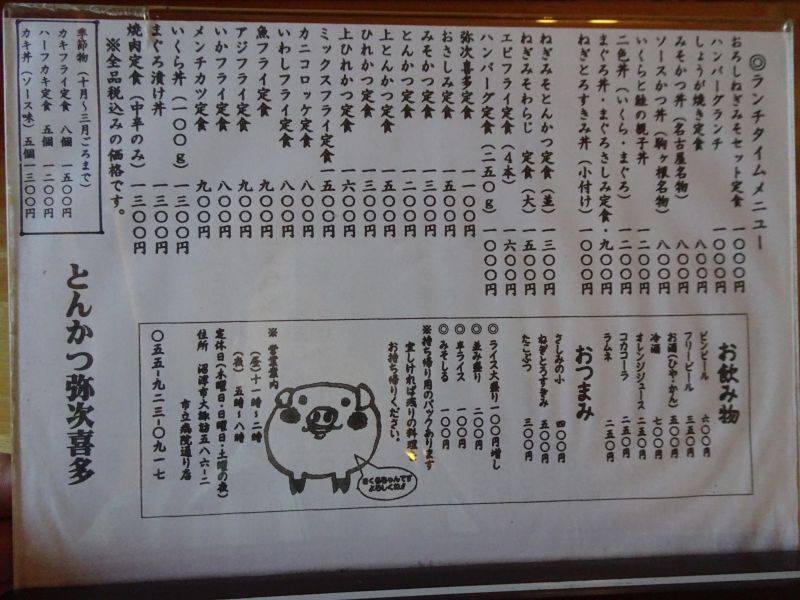 ◎ランチタイムメニュー
おろしねぎみそセット定食 一〇〇〇円
ハンバーグランチ 一〇〇〇円
しょうが焼き定食 八〇〇円
みそかつ丼（名古屋名物） 八〇〇円
ソースかつ丼（駒ヶ根名物） 八〇〇円
いくらと鮭の親子丼 一二〇〇円
二色丼（いくら・まぐろ） 一二〇〇円
まぐろ丼・まぐろさしみ定食・九〇〇円
ねぎとろすきみ丼（小付け） 一〇〇〇円
ねぎみそとんかつ定食（並） 一三〇〇円
ねぎみそわらじ 定食（大） 一五〇〇円
エビフライ定食（４本） 一六〇〇円
ハンバーグ定食（二五〇ｇ） 一〇〇〇円
弥次喜多定食 一一〇〇円
おさしみ定食 一五〇〇円
みそかつ定食 一三〇〇円
とんかつ定食 一二〇〇円
上とんかつ定食 一五〇〇円
ひれかつ定食 一三〇〇円
上ひれかつ定食 一六〇〇円
ミックスフライ定食 一五〇〇円
カニコロッケ定食 一〇〇〇円
いわしフライ定食 八〇〇円
魚フライ定食 九〇〇円
アジフライ定食 九〇〇円
いかフライ定食 八〇〇円
メンチカツ定食 九〇〇円
いくら丼（一〇〇ｇ） 一三〇〇円
まぐろ漬け丼 一三〇〇円
焼肉定食（中半のみ） 一三〇〇円
※全品税込みの価格です。
季節物（十月～三月ごろまで）
カキフライ定食 八個 一五〇〇円
ハーフカキ定食 五個 一二〇〇円
カキ丼（ソース味）五個 一三〇〇円
お飲み物
ビンビール 六〇〇円
フリービール 三五〇円
お酒（ひや・かん） 五〇〇円
冷酒 七〇〇円
オレンジジュース 二五〇円
コカコーラ 二五〇円
ラムネ 二五〇円
おつまみ
さしみの小 四〇〇円
ねぎとろすきみ 五〇〇円
たこぶつ 三〇〇円
◎ライス大盛り 一〇〇円増し
◎並み盛り 二〇〇円
◎半ライス 一〇〇円
◎みそしる 一〇〇円
※持ち帰り用のパックあります
宜しければ残りの料理を
お持ち帰りください。
よろしくね!!
※ 営業案内
（昼）十一時～二時
（夜） 五時～八時
定休日（木曜日・日曜日・土曜の夜）
住所 沼津市大諏訪五八六―二
市立病院通り店
〇五五―九二三―〇九一七
とんかつ弥次喜多